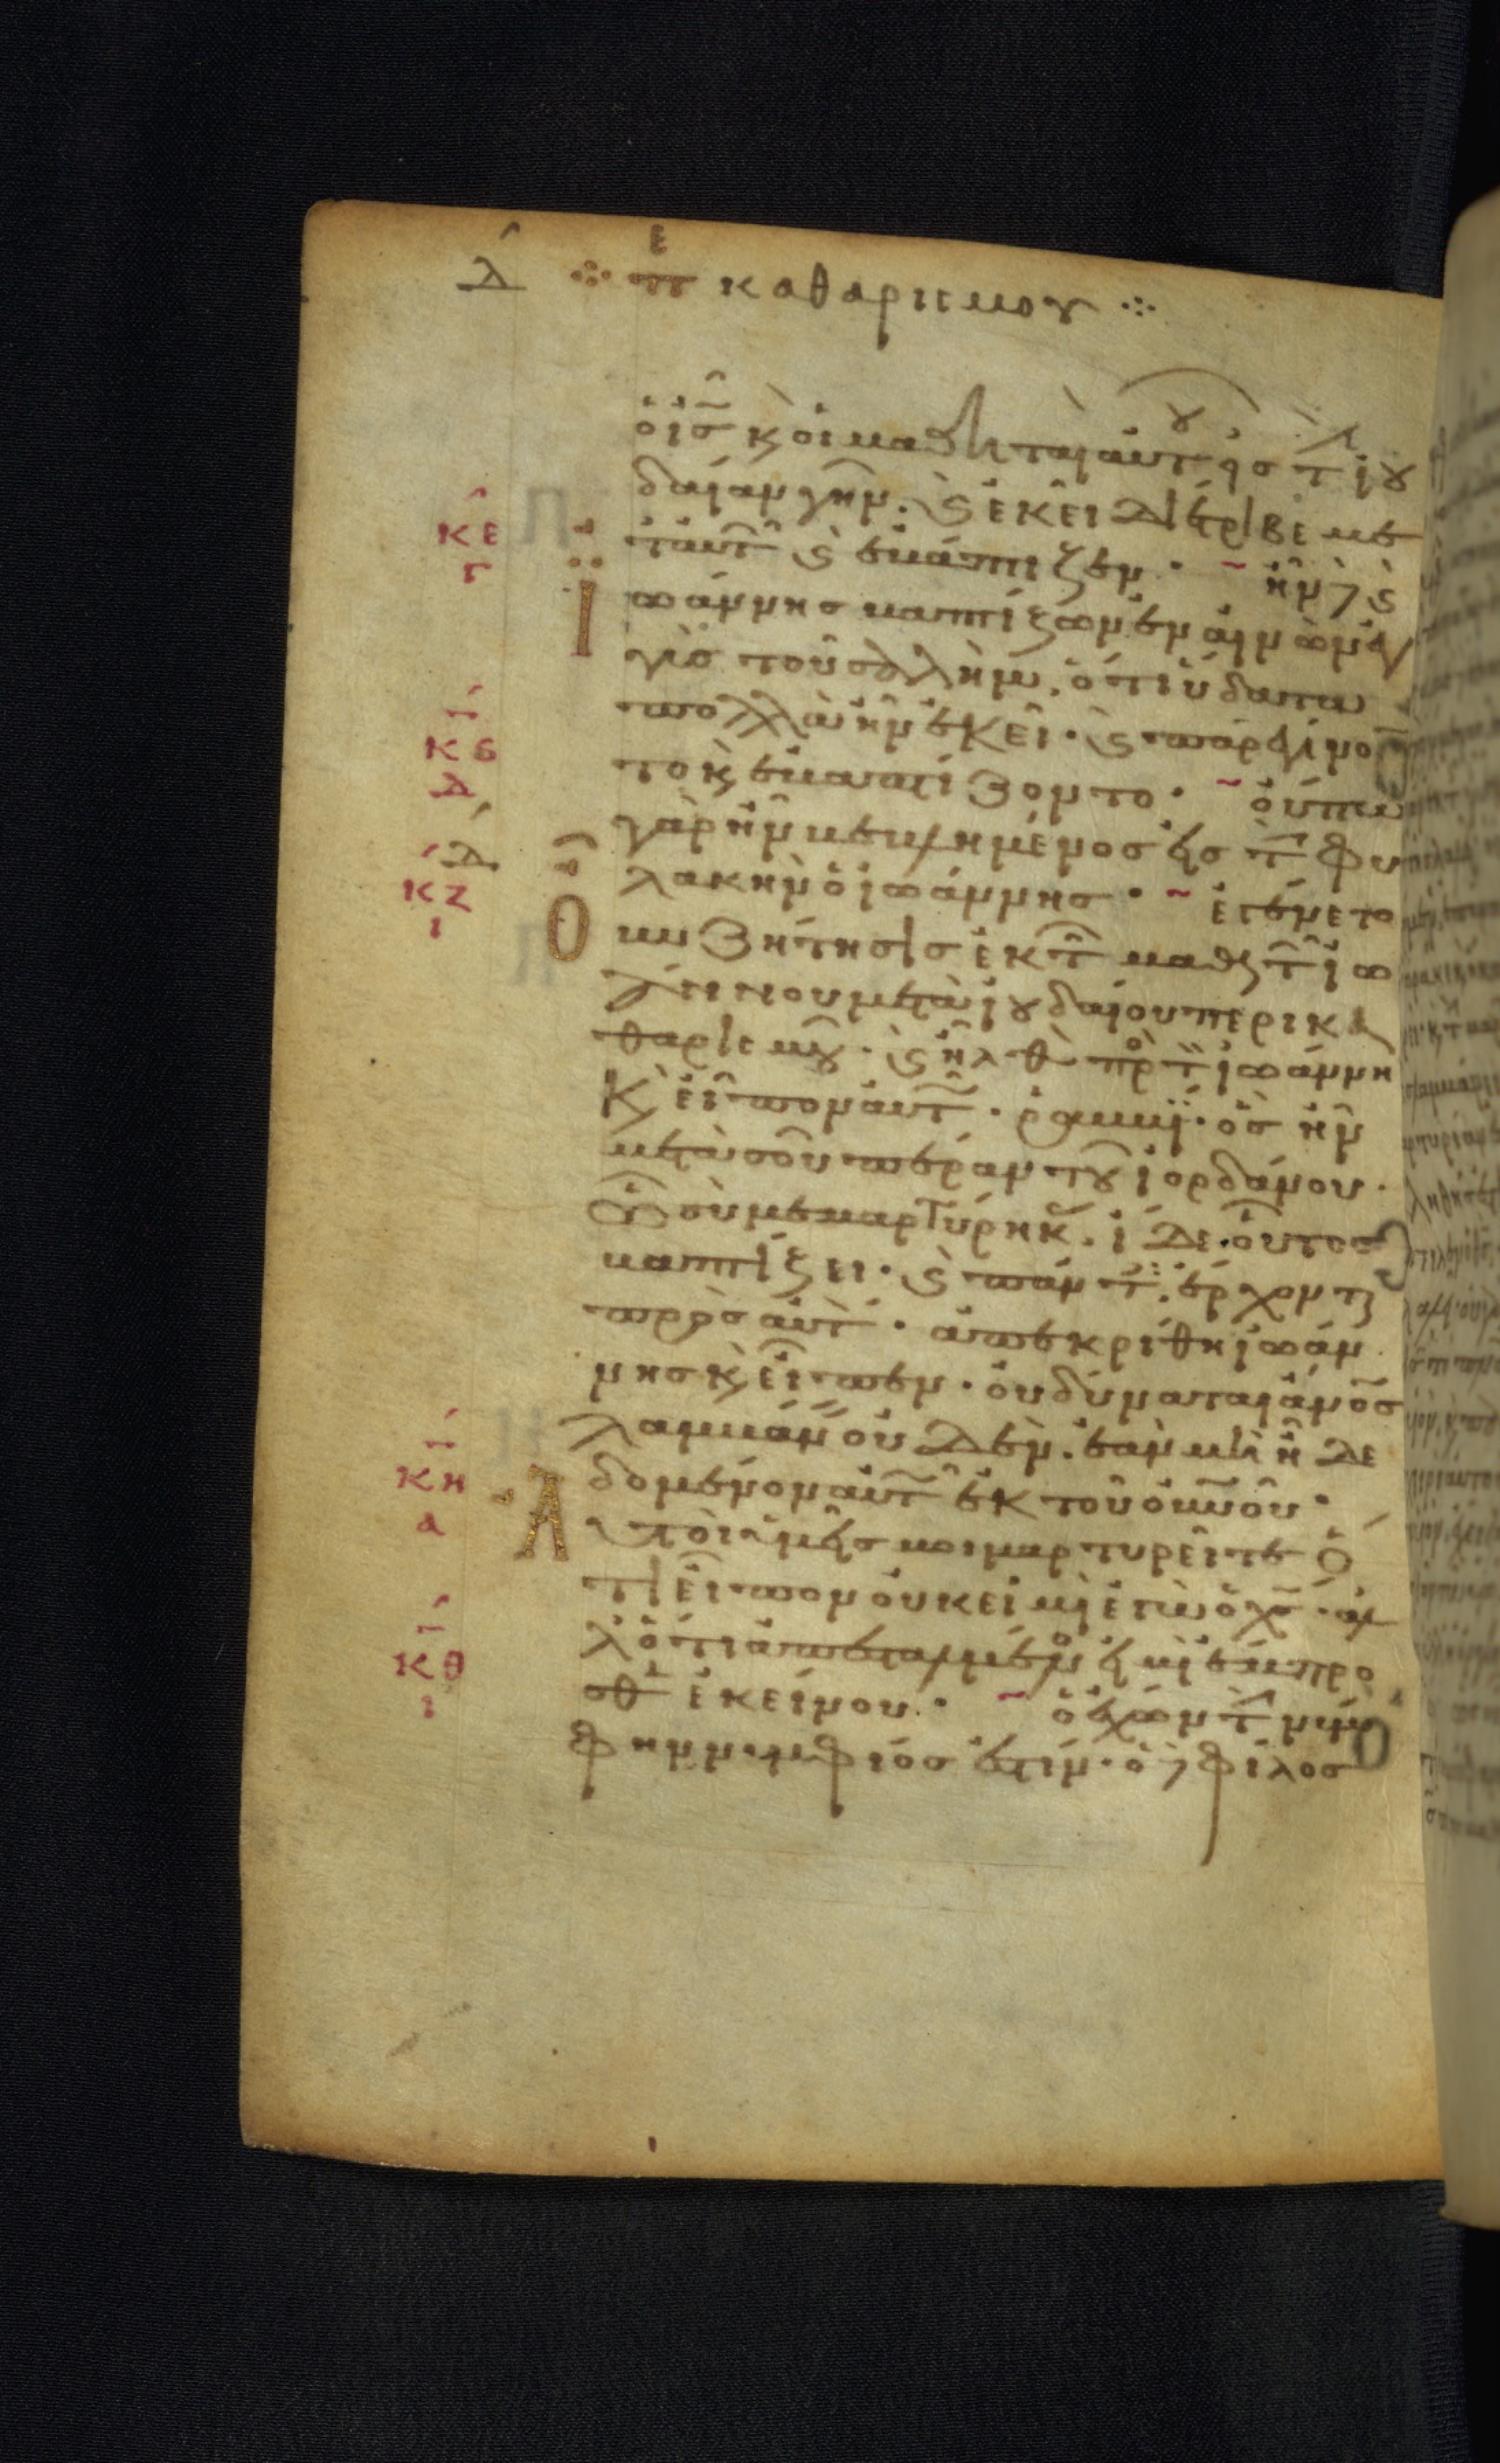 Δ ⁘ πε καθαρισμου ⁘
ὁ ις̅ κ̀ οἱ μαθηταὶ αὐτου εἰς τ ἰου
δαίαν γῆν. ϛ ἐκεῖ διέτριβε με
κε
τ αὐτ ϛ ἐβάπτιζεν. ~ ἦν δ ϛ
γ
Ἰωάννης βαπτίζων ἐν αἰνὼν ἐγ
γὺσ τοῦ σαλλήμ. ὅτι ὕδατα
πολλὰ ἦν ἐκεῖ. ϛ παρεγίνον
κϛ
το κ̀ ἐβαπτίζοντο. ~ οὔπω
δ
γὰρ ἦν βεβλημένος εἰς τ φυ
Δ
λακὴν ὁ ἰωάννης. ~ ἐγένετο
κζ
ι
Ο υν ζήτησις ἐκ τ μαθητ ἰω
άννου μετὰ ἰουδαίου περὶ κα
θαρισμοῦ. ϛ ἦλθ πρ τ ἰωάννη
κ̀ εἶπον αὐτ. ῥαββΐ. ὃσ ἦν
μετὰ σοῦ πέραν τοῦ ἰορδάνου.
ᾧ σὺ μεμαρτύρηκ. ἴδε οὗτος
βαπτίζει. ϛ πάντ ἔρχοντ
πρὸσ αὐτ. ἀπεκρίθη ἰωάν
νης κ̀ εἶπεν. οὐ δύναται ἄνοσ
λαμβάν οὐδὲν. ἐὰν μὴ ἦ δε
κη
δομένον αὐτ ἐκ τοῦ οὐνοῦ.
α
Αὐτοὶ ὑμεῖς μοι μαρτυρεῖτε ὅ
τι εἶπον οὐκ εἰμὶ ἐγὼ ὁ χσ. ἀλ
λ ὅτι ἀπεσταλμέν εἰμὶ ἔμπρο
κθ
σθ ἐκείνου. ~ ὁ ἔχων τ νύμ
ι
φην νυμφίος ἐστίν. ὁ δ φίλος